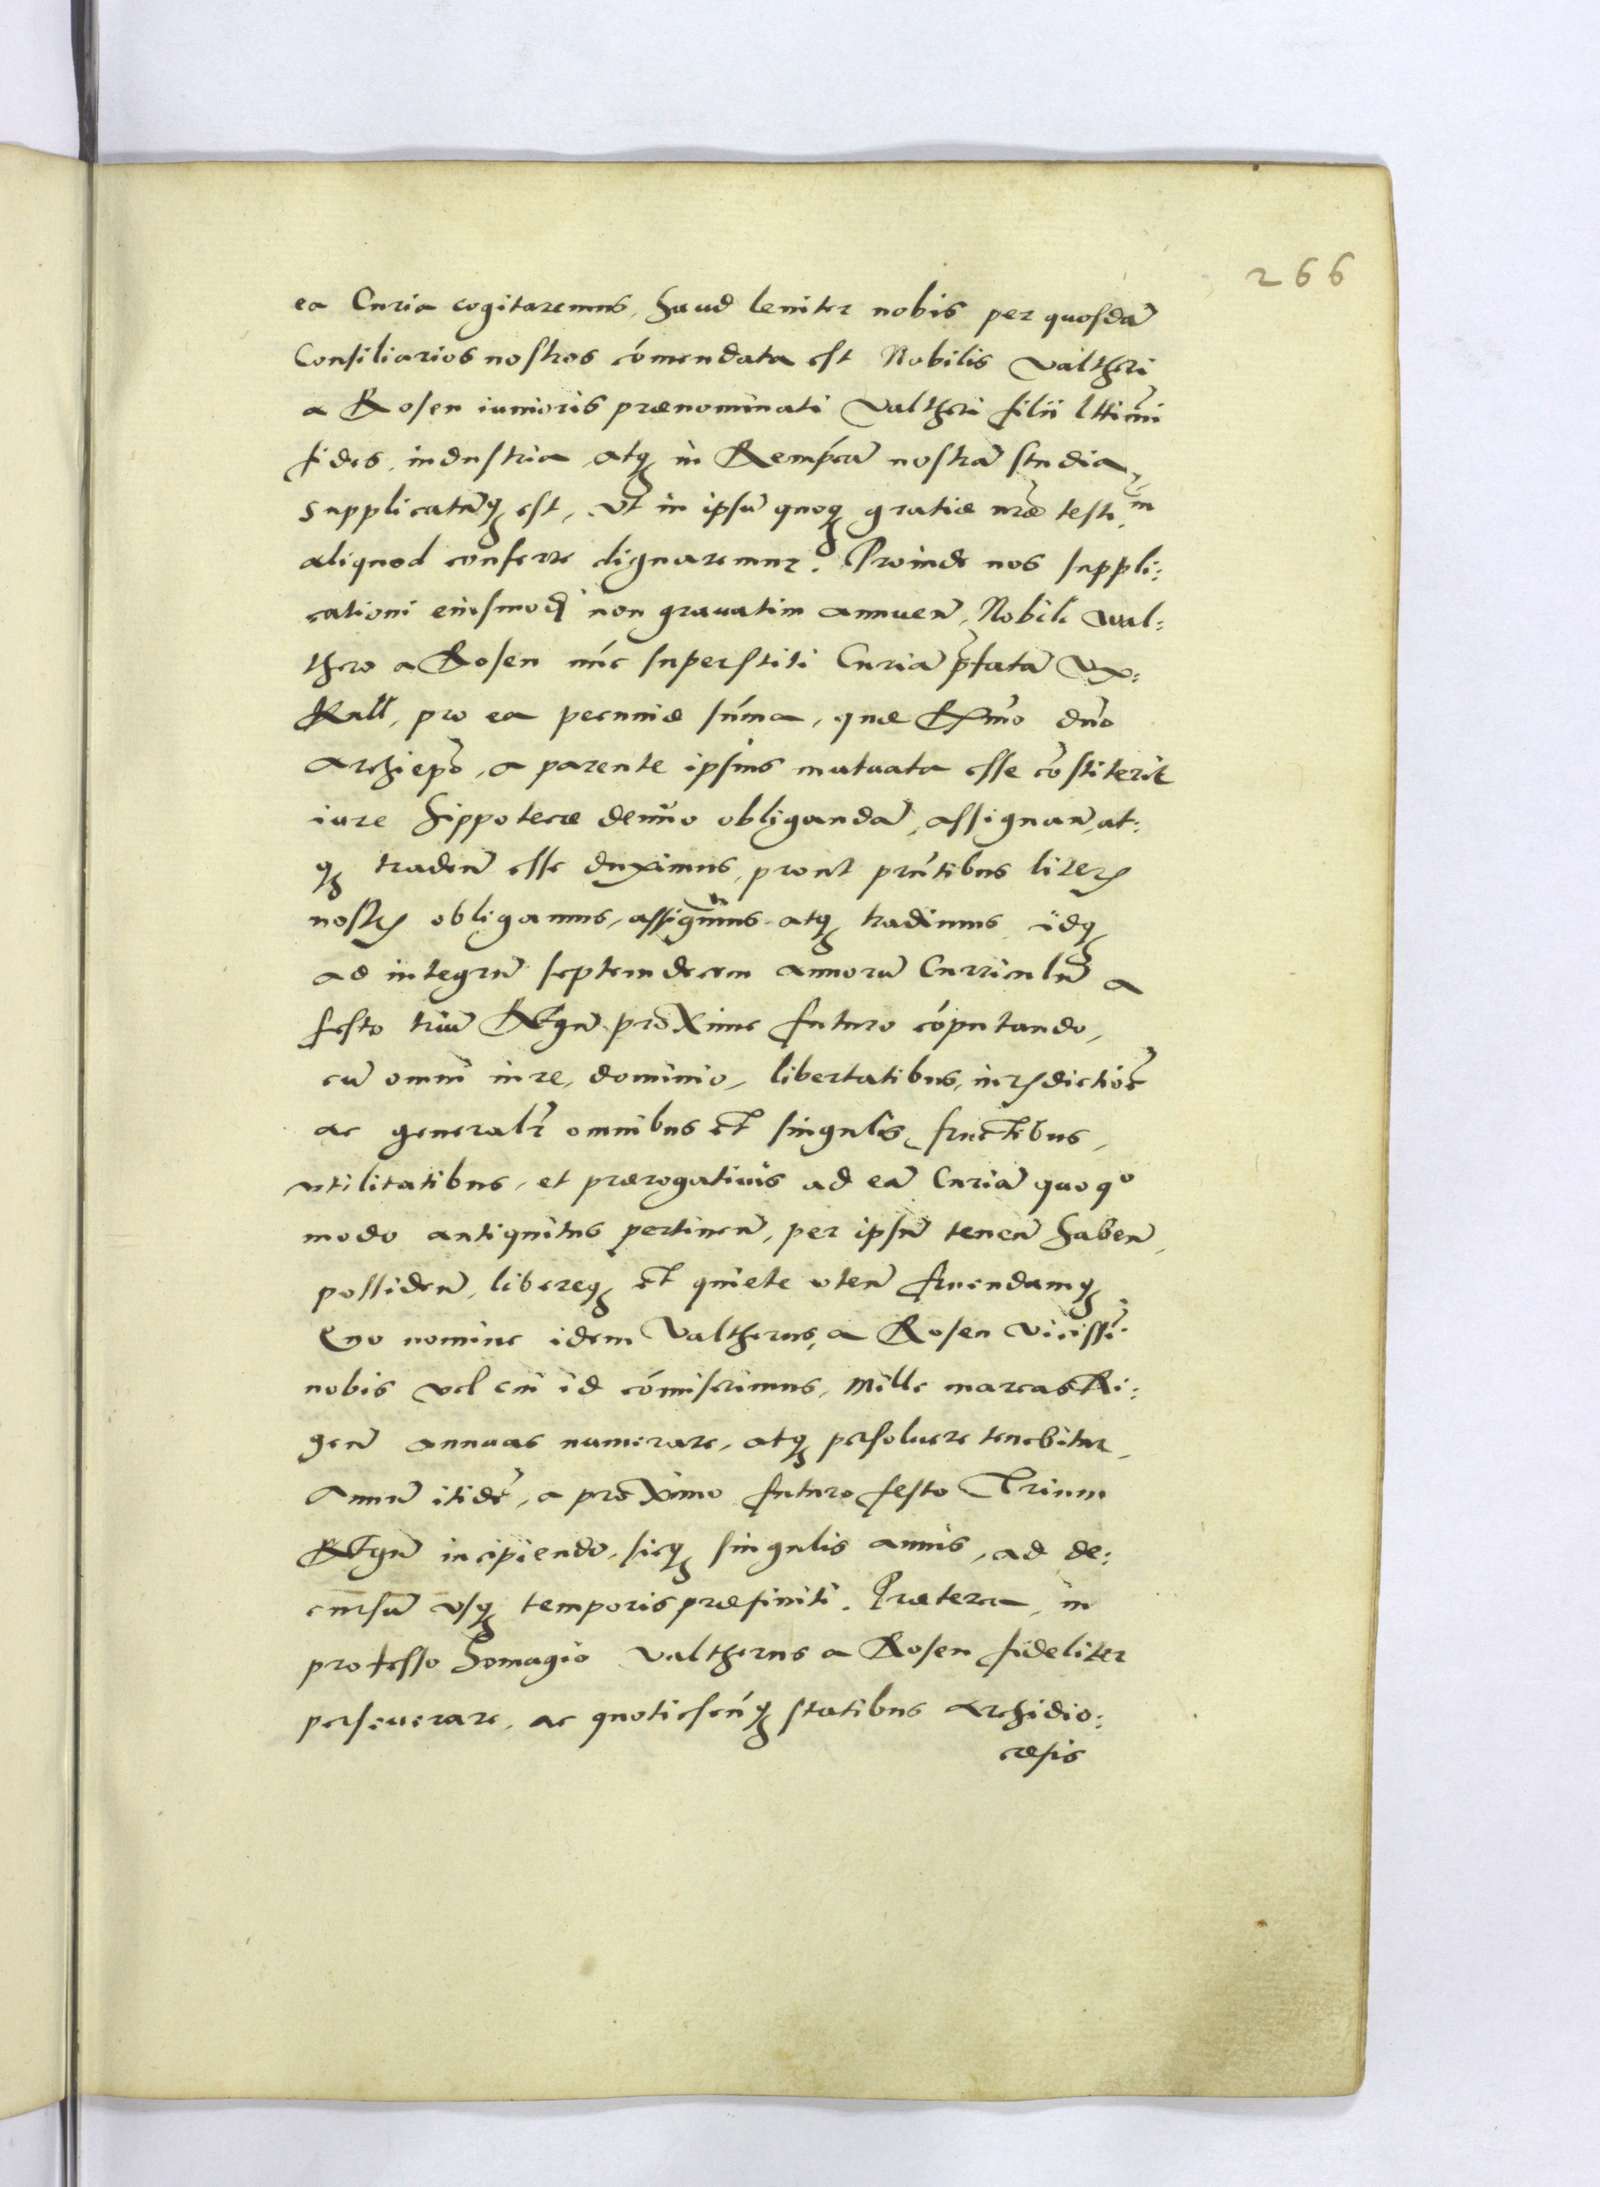 266
ea Curia cogitaremus, haud leniter nobis per quosdā
Consiliarios nostros cōmendata est Nobilis Valtheri
a Rosen iunioris prænominati Valtheri filii lttimi
fides, industria, atq₃ in Rempcā nostrā studia,
supplicatūq₃ est, vt in ipsū quoq₃ gratiæ nræ testim
aliquod conferre dignaremur. Proinde nos suppli:
cationi eiusmodi non grauatim annuen̄, Nobili wal:
thero a Rosen nūc superstiti Curiā pfatā Vx:
Kull, pro ea pecuniæ sūma, quæ Rmo dno
Archiepo, a parente ipsius mutuata esse cōstiterit
iure hippotecæ denuo obligandā, assignan̄, at:
q₃ traden̄ esse duximus, prout pntibus literis
nostris obligamus, assignamus atq₃ tradimus, idq₃
ad integrū septemdecem annorū Curriculū a
festo triū Regū proxime futuro cōputando,
cū omni iure, dominio, libertatibus, iurisdictiōe
ac generalr omnibus et singulis, fructibus,
vtilitatibus, et prærogatiuis ad eā Curiā quoqo
modo antiquitus pertinen̄, per ipsū tenen̄ haben̄,
possiden̄, libereq₃ et quiete vten̄ fruendamq₃.
Quo nomine idem Valtherus, a Rosen vicissī
nobis vel cui id cōmiserimus, mille marcas Ri:
gen̄ annuas numerare, atq₃ persoluere tenebitur,
Annū itidē, a proximo futuro festo Trium
Regū incipiendo, sicq₃ singulis annis, ad de:
cursū vsq₃ temporis præfiniti. Præterea, in
professo homagio Valtherus a Rosen fideliter
perseuerare, ac quotiescūq₃ statibus Archidio:
cesis